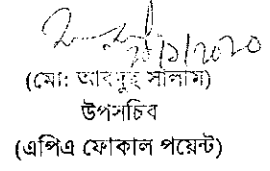 ২০/১/২০২০
(মো: আবদুছ সালাম)
উপসচিব
(এপিএ ফোকাল পয়েন্ট)